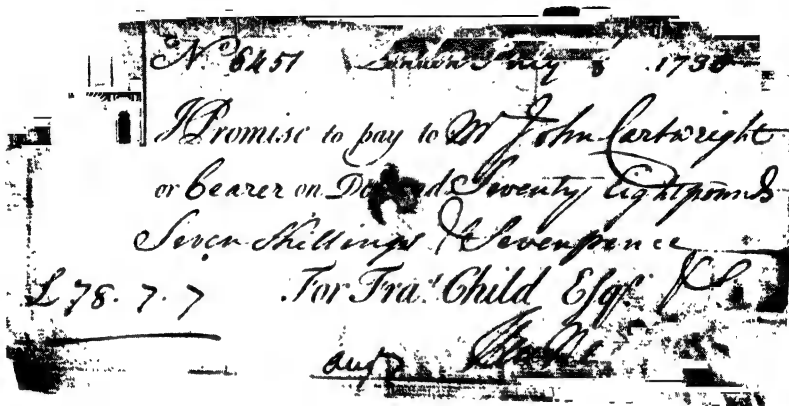 No. 6451 London July 8 1730
I Promise to pay to Mr John Cartwright
or bearer on Demand Seventy Eight pounds
Seven Shillings & Sevenpence
£ 78. 7. 7 For Fras. Child Esqr. & Co